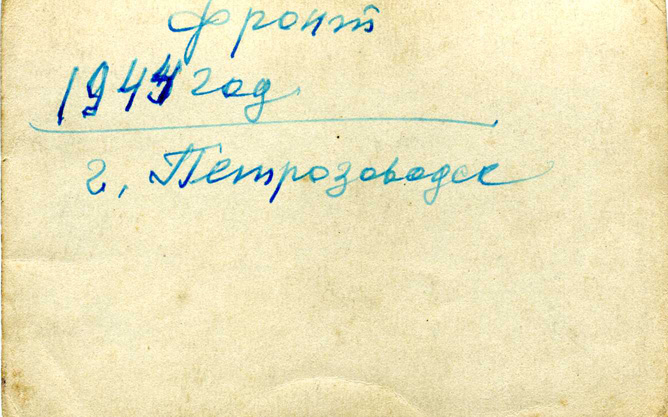 фронт
1944 год
г, Петрозаводск